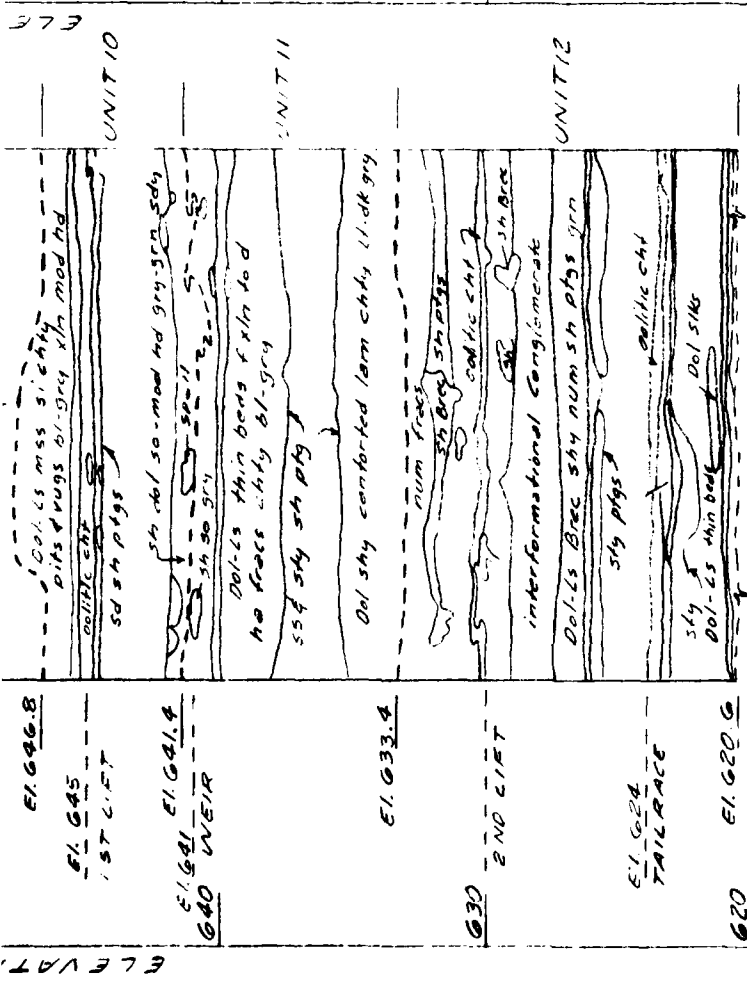 ELE
UNIT 10
UNIT 11
UNIT 12
Dol-Ls mss si chty
pits & vugs bl-gry xln mod hd
oolitic cht
sd sh ptgs
sh dol so-mod hd gry-grn sdy
spall
sh so gry
Dol-Ls thin beds f xln to d
hd fracs chty bl-gry
ss & sty sh ptg
Dol shy contorted lam chty lt-dk gry
num fracs
sh Brec sh ptgs
oolitic cht
sh Brec
sh
interformational Conglomerate
Dol-Ls Brec shy num sh ptgs grn
sty ptgs
oolitic cht
sty
Dol-Ls thin beds
Dol slks
El. 646.8
El. 645
1ST LIFT
El. 641.4
El. 641
WEIR
640
El. 633.4
2ND LIFT
630
El. 624
TAILRACE
El. 620.6
620
ELEVAT